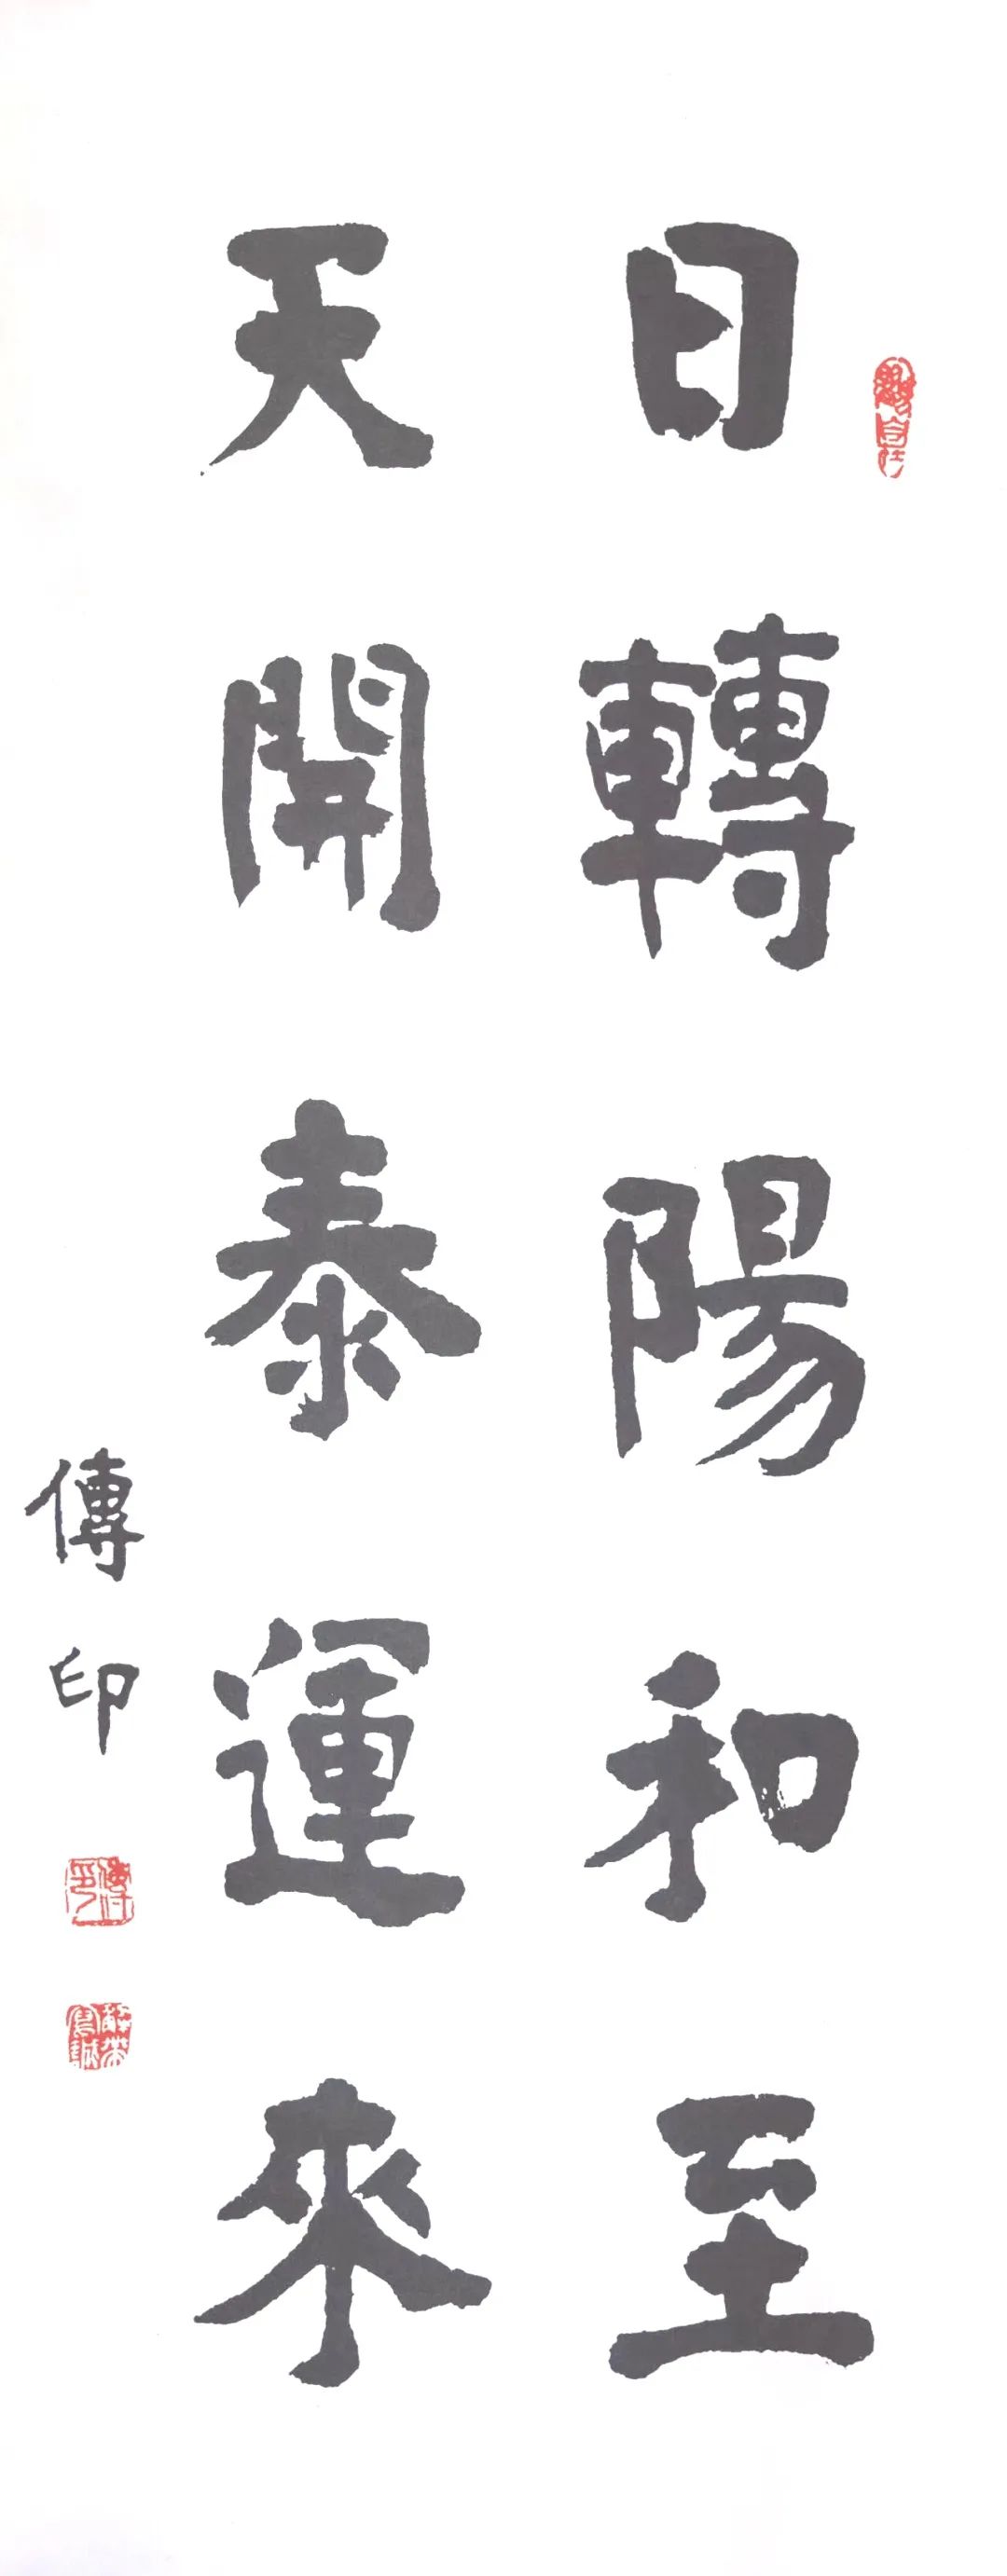 日轉陽和至
天開泰運來
傳印
傳印